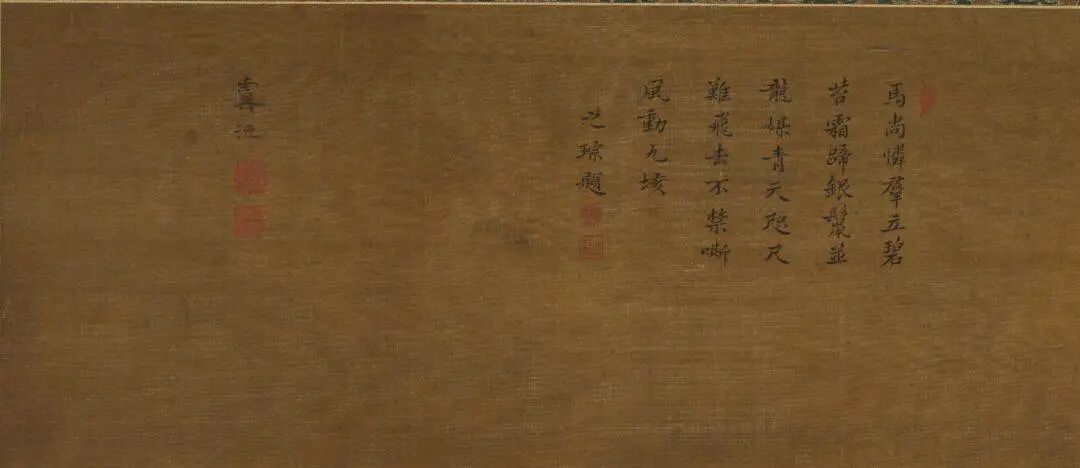 馬尚憐羣立碧
苔霜蹄銀鬣並
龍媒青天咫尺
難飛去不禁嘶
風動九垓
之琮題